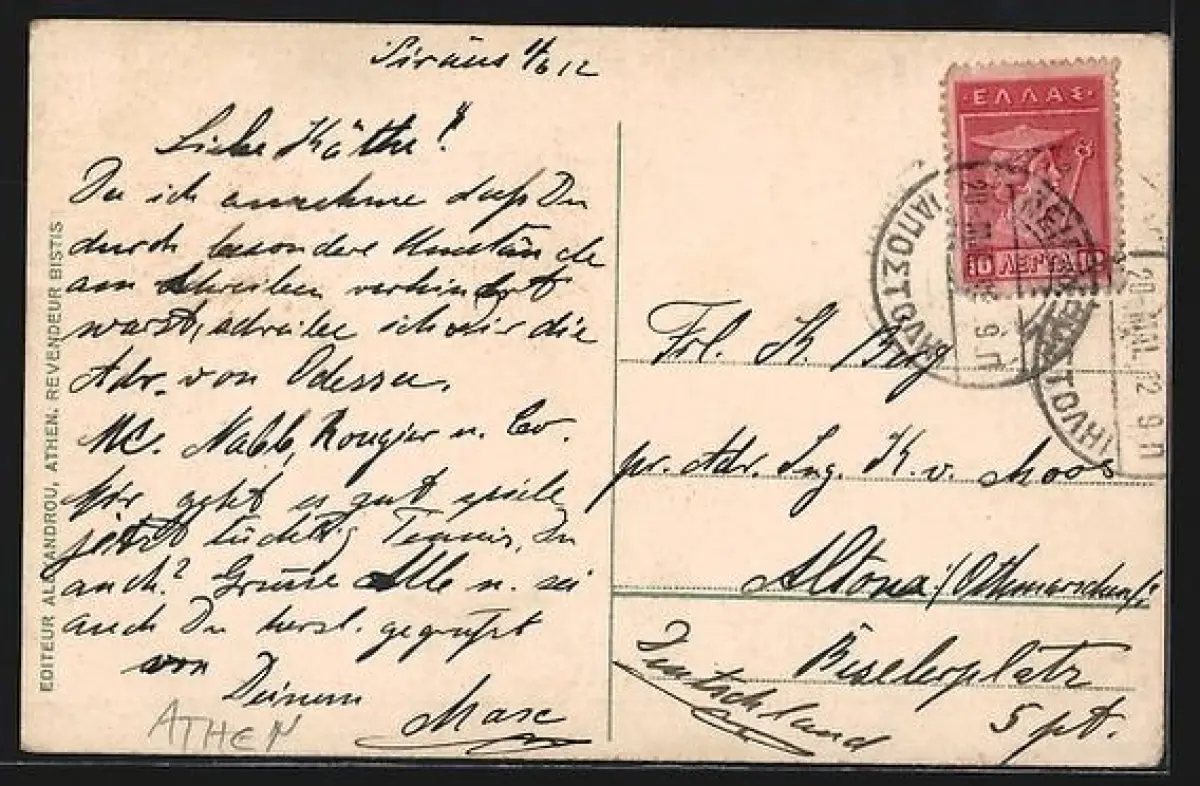 Piräus 1/6 12
Liebe Käthe!
Da ich annehme daß Du
durch besondere Umstände
am Schreiben verhindert
warst, schreibe ich Dir die
Adr. von Odessa.
Mc. Nabb, Rougier u. Co.
Mir geht es gut spiele
jetzt tüchtig Tennis, Du
auch? Grüsse Alle u. sei
auch Du herzl. gegrüßt
von
Deinem
Max
ATHEN
EDITEUR ALEXANDROU, ATHEN. REVENDEUR BISTIS
ΕΛΛΑΣ
10 ΛΕΠΤΑ 10
Frl. K. Berg
pr. Adr. Ing. K. v. Moos
Altona/Othmarschen
Beselerplatz
5 pt.
Deutschland